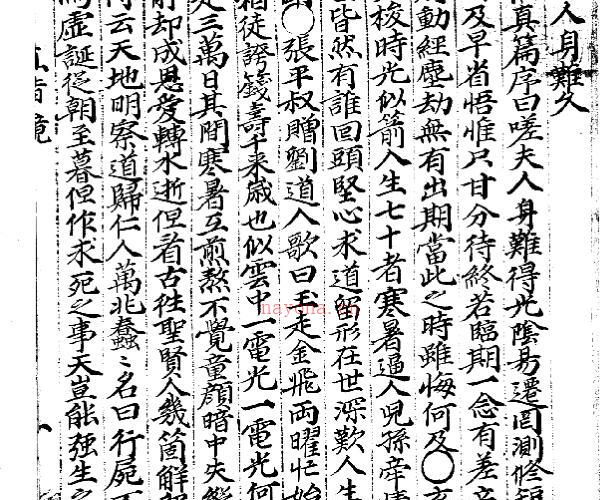 人身難久
真篇序曰嗟夫人身難得光陰易遷罔測修短
及早省悟惟只甘分待終若臨期一念有差立
動經塵劫無有出期當此之時雖悔何及○
梭時光似箭人生七十者寒暑逼人兒孫牽情
皆然有誰回頭堅心求道解形在世深歎人生
○張平叔贈劉道人歌曰玉走金飛両曜忙始
稱徒誇籛壽千來歲也似雲中一電光一電光何
是三萬日其間寒暑互煎熬不覺童顏暗中失縱
前却成恩愛轉水逝但看古往聖賢人幾箇解
云天地明察道歸仁人萬兆蠢〻名曰行屍
爲虛誕從朝至暮但作求死之事天豈能强生之
直指鏡
nayona.cn